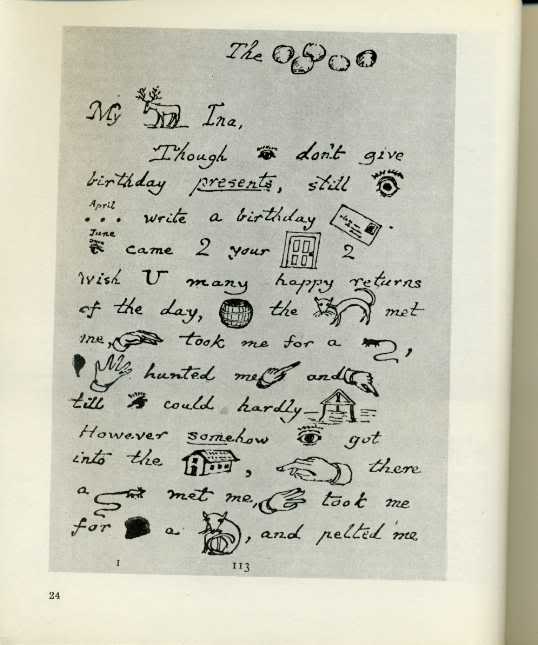 The
My Ina,
Though don't give
birthday presents, still
April
... write a birthday
June
came 2 your 2
wish U many happy returns
of the day, the met
me, took me for a ,
hunted me and
till could hardly
However somehow got
into the , there
a met me, took me
for a , and pelted me
I 113
24